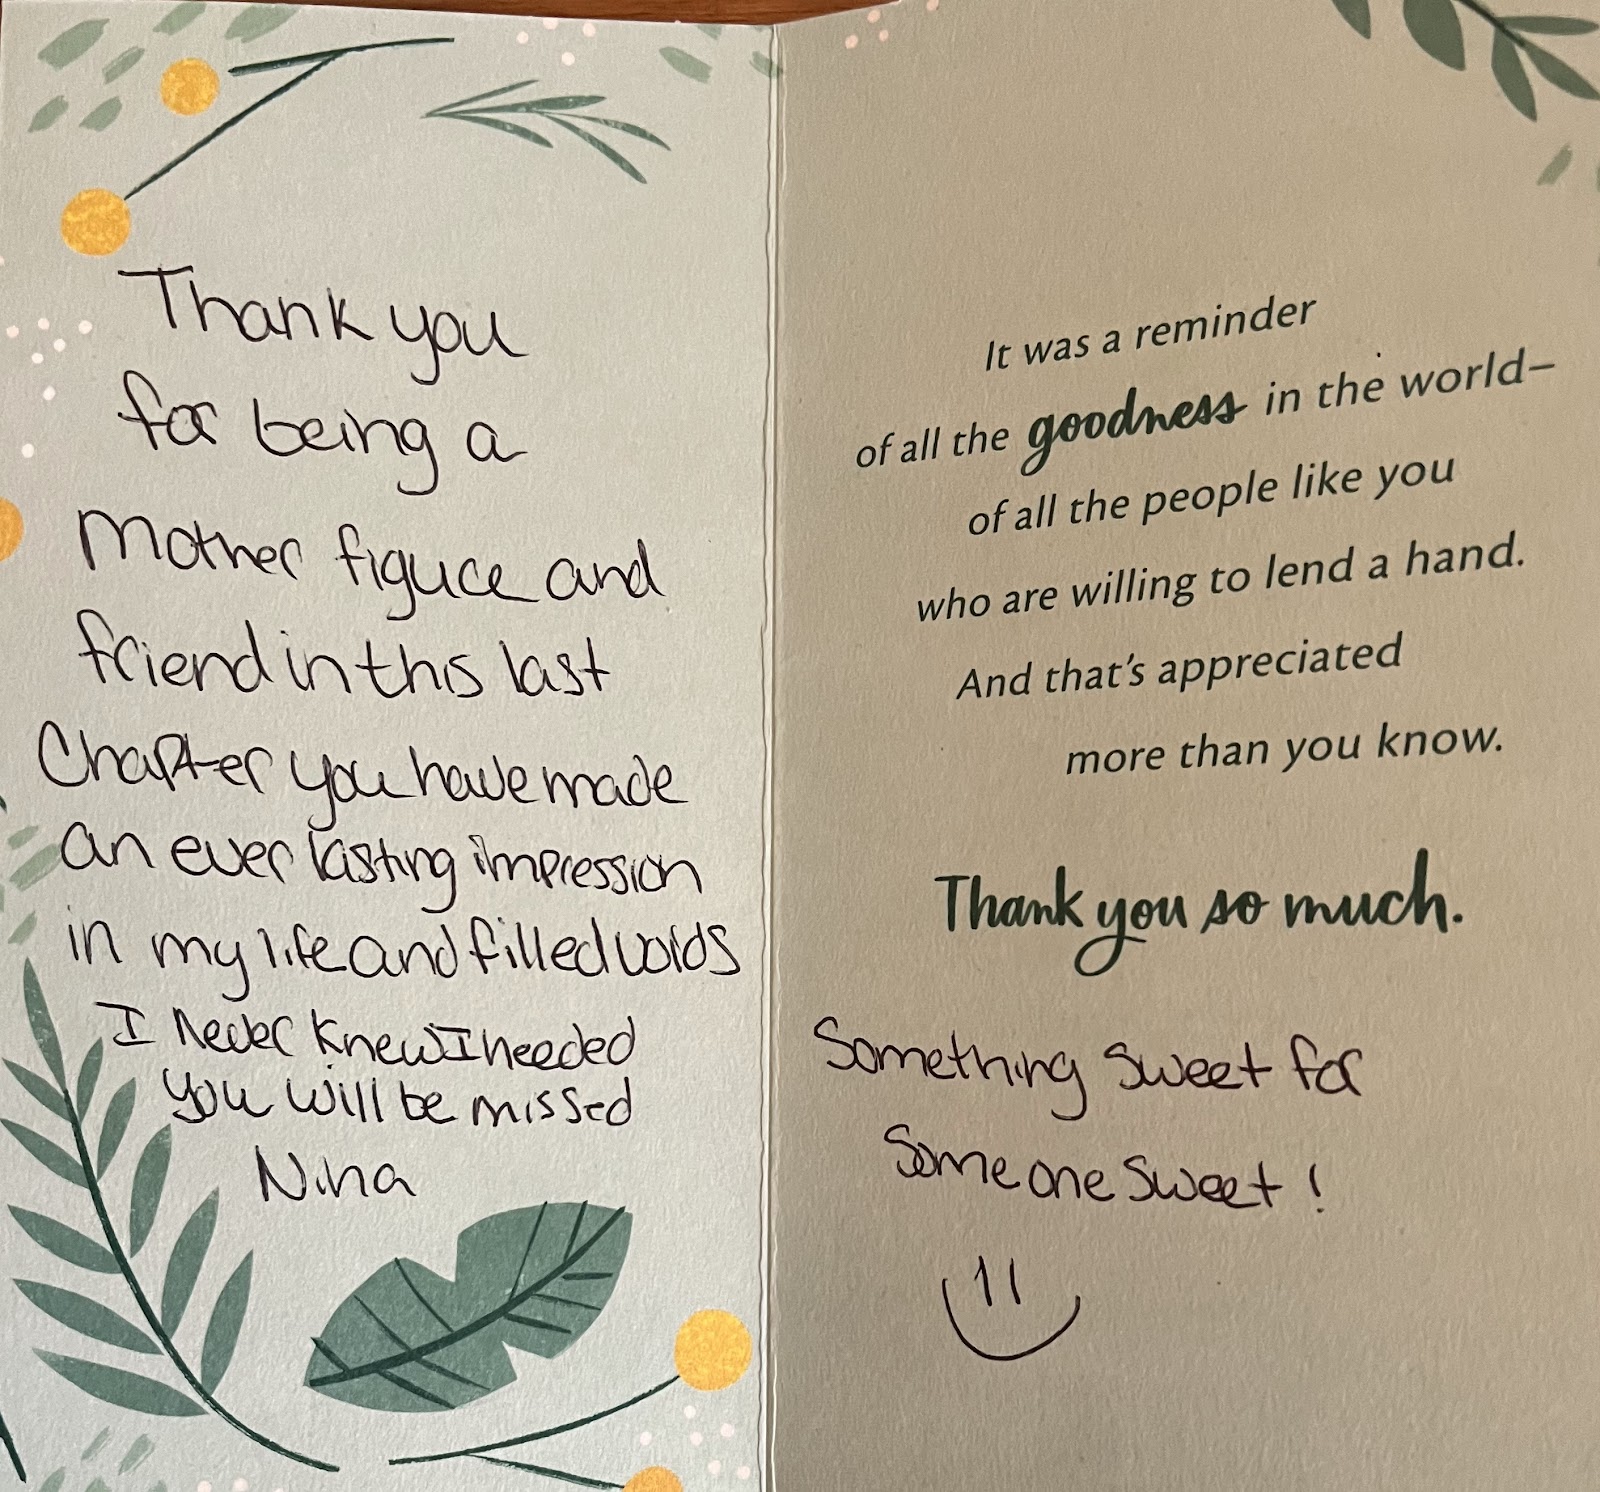 Thank you
for being a
Mother figure and
friend in this last
Chapter you have made
an ever lasting impression
in my life and filled voids
I Never Knew I needed
you will be missed
Nina
It was a reminder
of all the goodness in the world–
of all the people like you
who are willing to lend a hand.
And that's appreciated
more than you know.
Thank you so much.
Something sweet for
Someone Sweet!